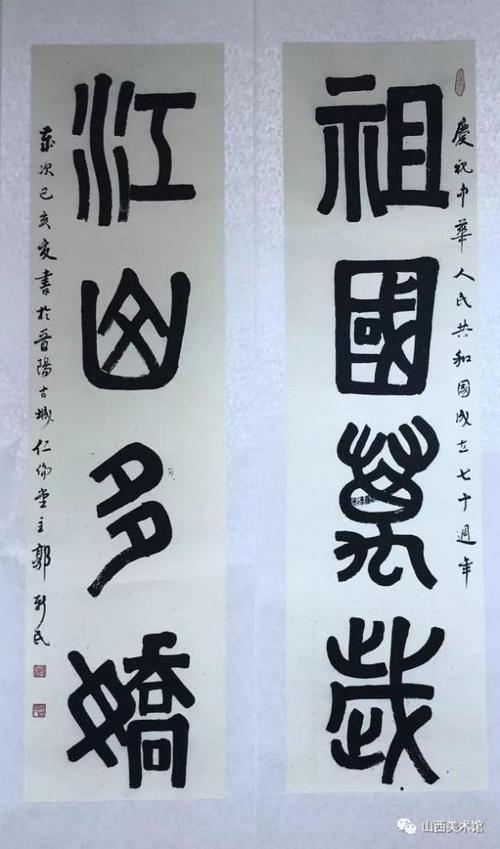 祖國萬歲
慶祝中華人民共和國成立七十週年
江山多嬌
歲次己亥夏書於晉陽古城仁倫堂主郭新民
山西美术馆